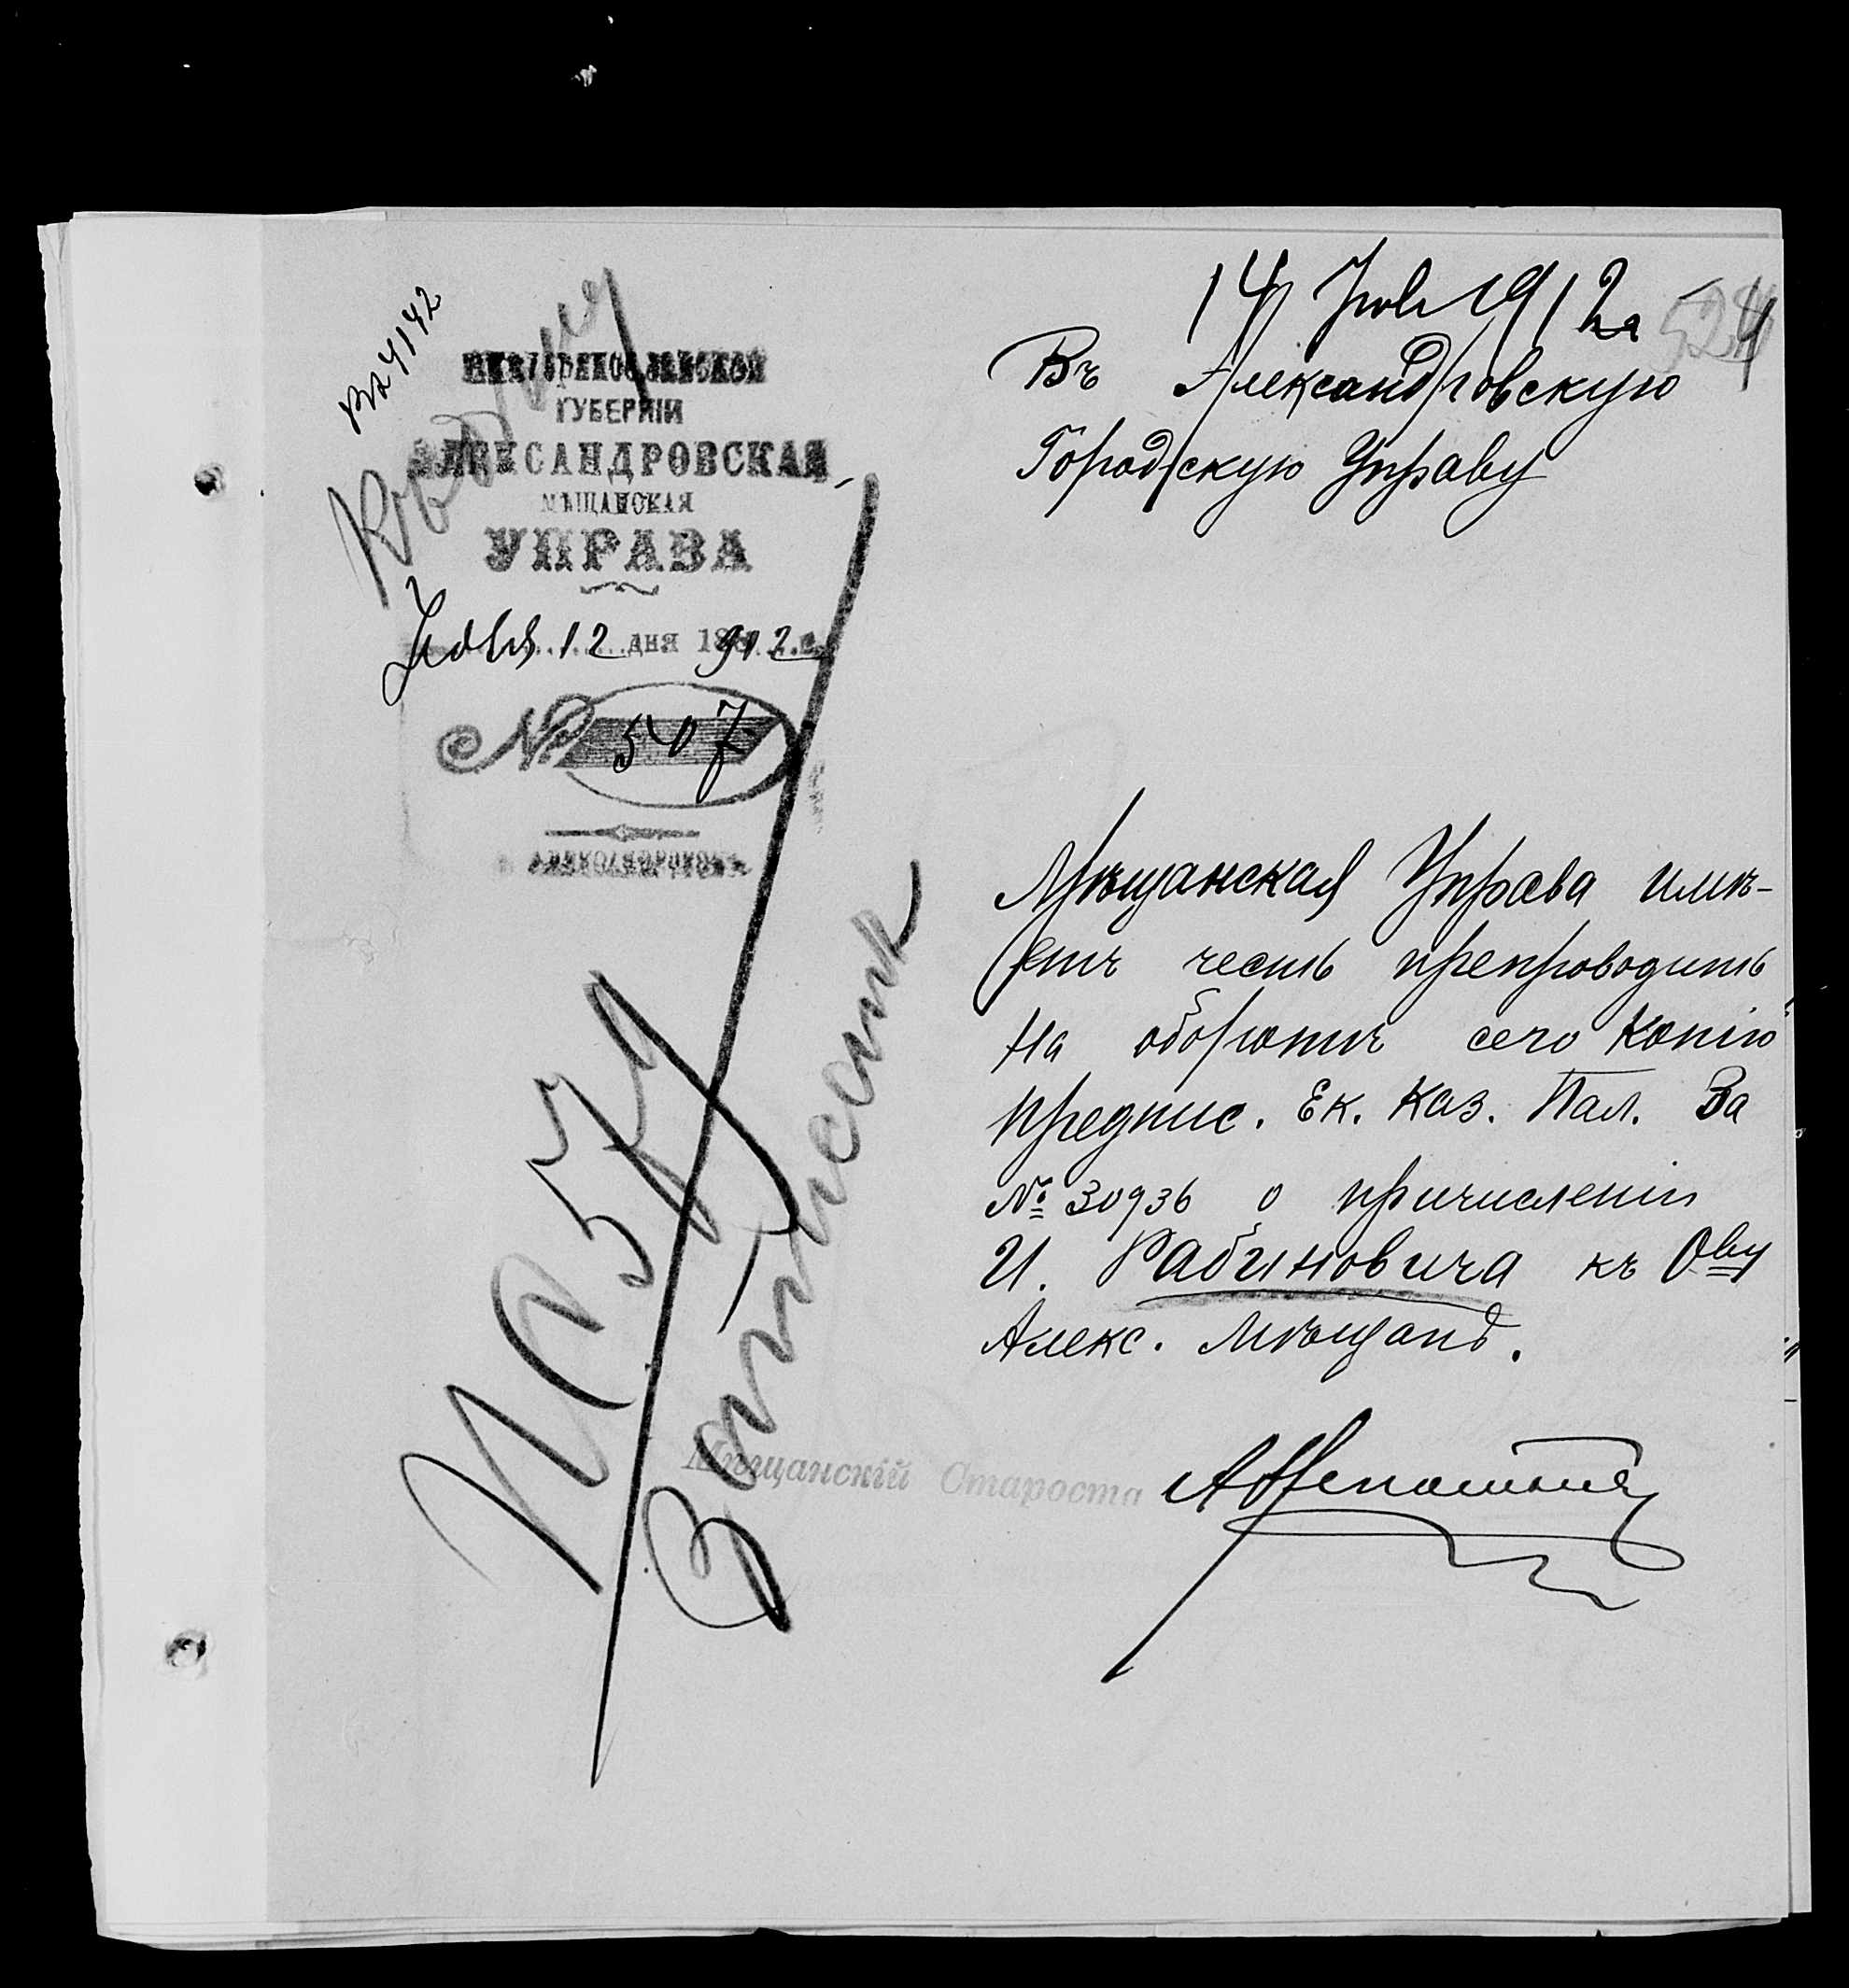 14 Іюл 1912 г
524
Вх 4142
ЕКАТЕРИНОСЛАВСКОЙ
ГУБЕРНІИ
АЛЕКСАНДРОВСКАЯ
МѢЩАНСКАЯ
УПРАВА
Іюля 12 дня 1912 г.
№ 507
г. АЛЕКСАНДРОВСКЪ
Въ Александровскую
Городскую Управу
Мѣщанская Управа имѣ-
етъ честь препроводить
На оборотѣ сего Копію
предпис. Ек. Каз. Пал. За
№ 30936 о причисленіи
И. Рабиновича къ Ову
Алекс. Мѣщанъ.
Мѣщанскій Староста